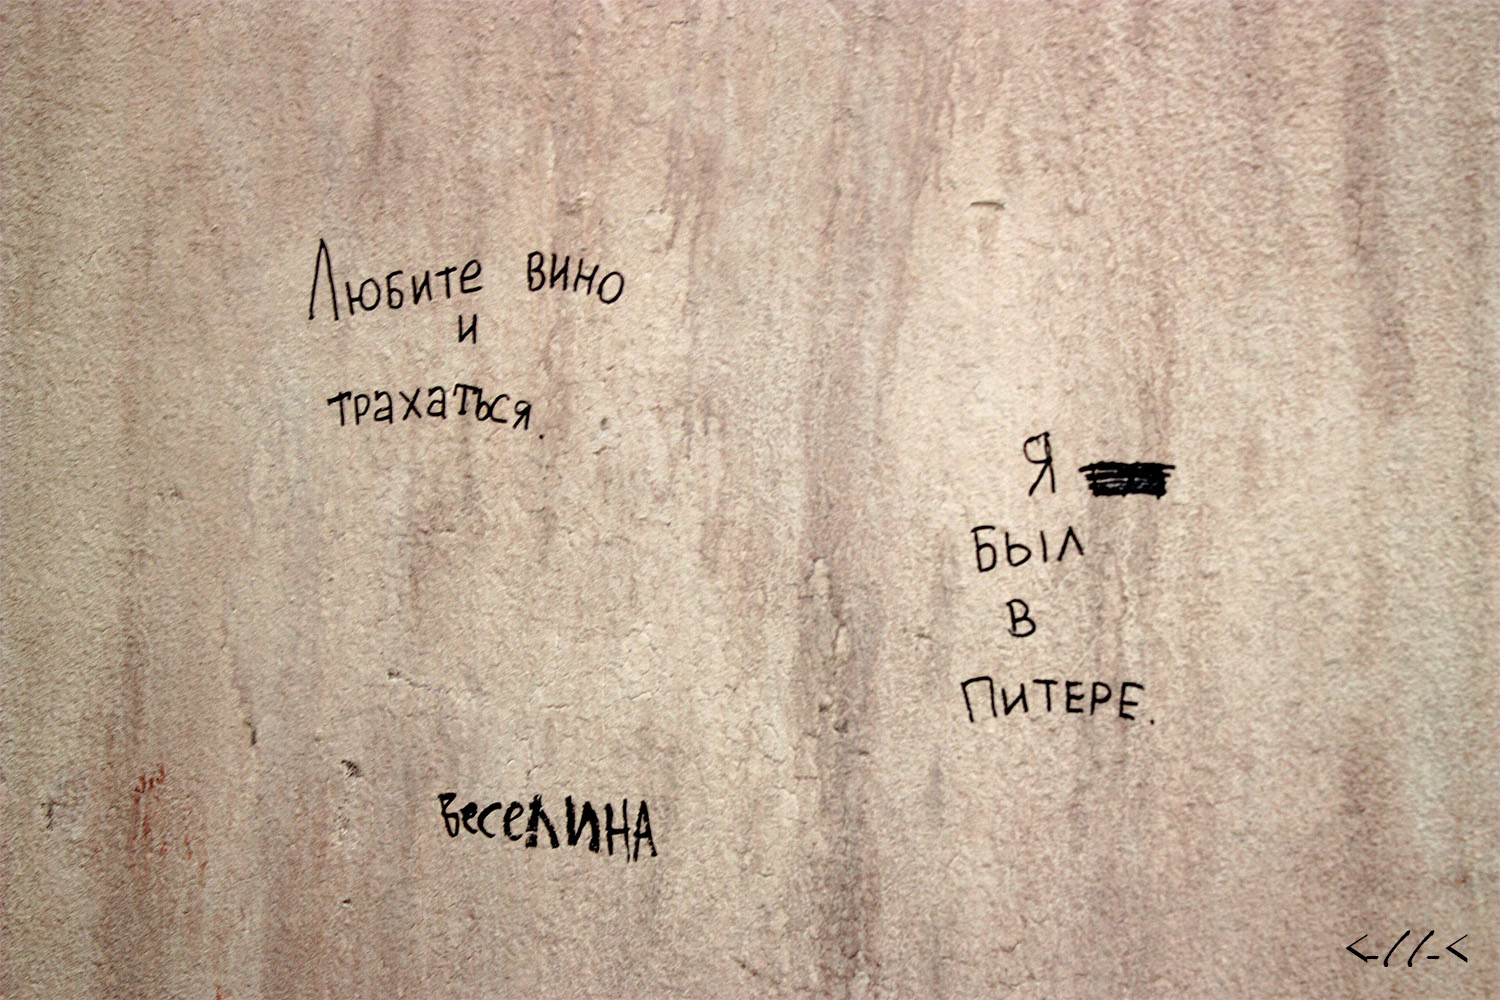 Любите вино
и
трахаться.
Я
был
в
Питере.
Веселина
<-//-<